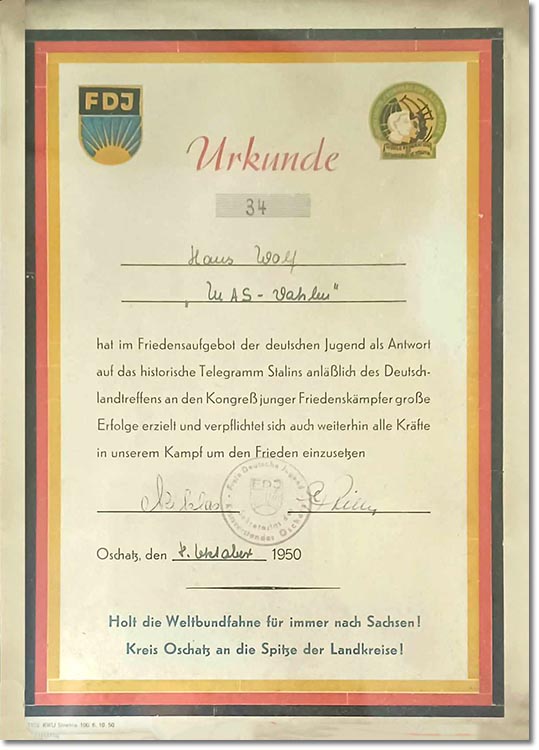 FDJ
Urkunde
34
Hans Wolf
"MAS-Dahlen"
hat im Friedensaufgebot der deutschen Jugend als Antwort
auf das historische Telegramm Stalins anläßlich des Deutsch-
landtreffens an den Kongreß junger Friedenskämpfer große
Erfolge erzielt und verpflichtet sich auch weiterhin alle Kräfte
in unserem Kampf um den Frieden einzusetzen
Freie Deutsche Jugend
FDJ
Oschatz
Oschatz, den 7. Oktober 1950
Holt die Weltbundfahne für immer nach Sachsen!
Kreis Oschatz an die Spitze der Landkreise!